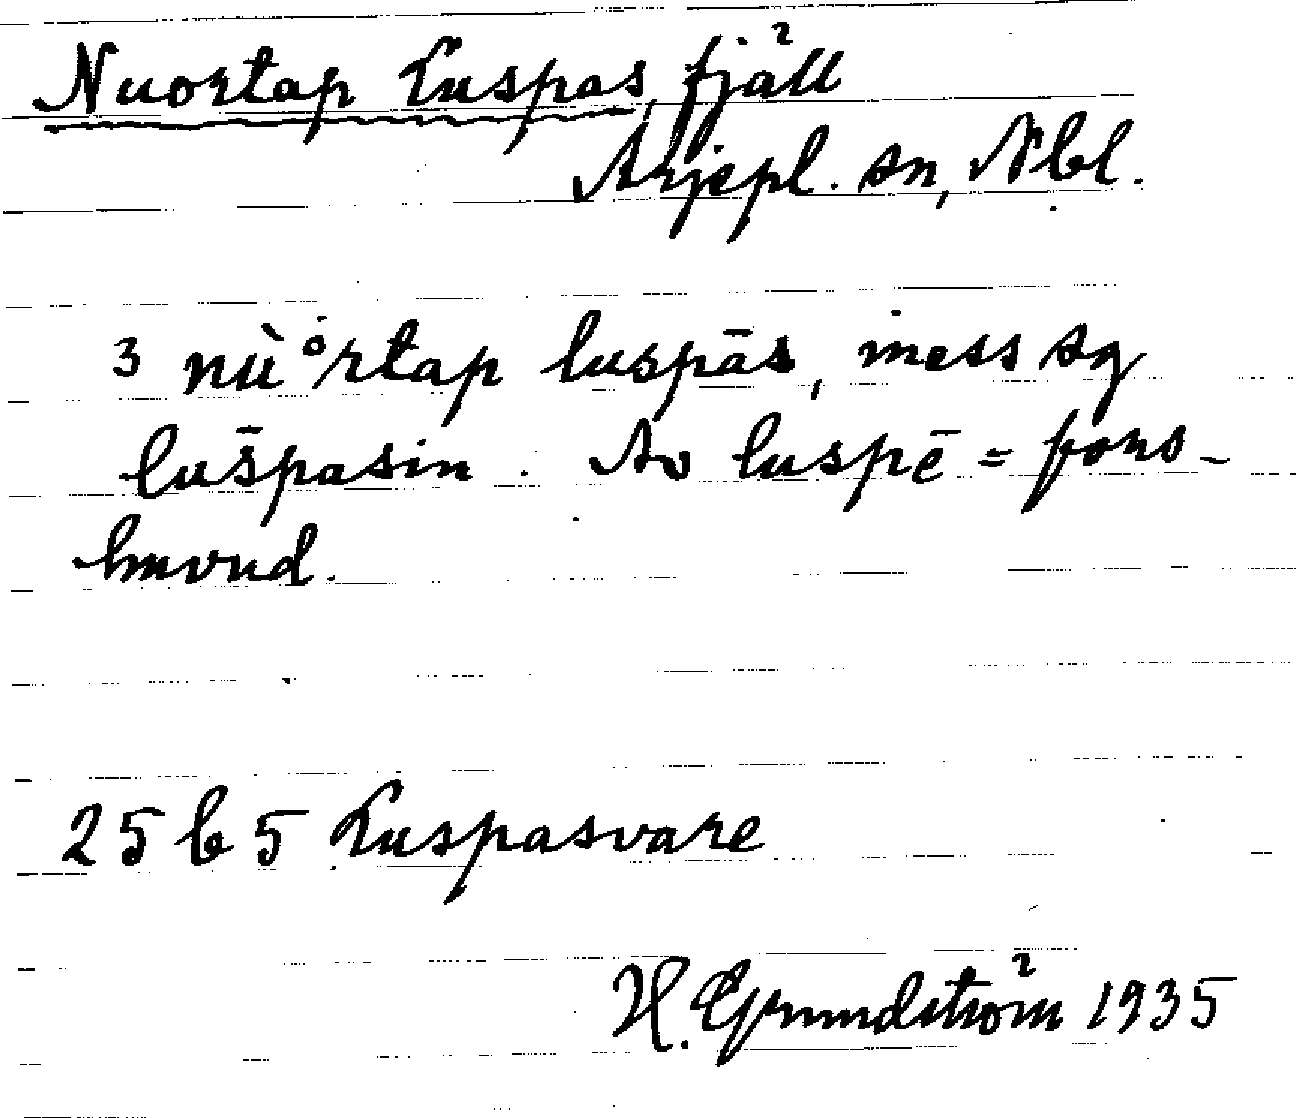 Nuortap Luspas, fjäll
Arjepl. sn, Nbl.
3 nù°rtap luspās, iness sg
lus̄pasin. Av luspē = fors-
huvud.
25 b 5 Luspasvare
H. Grundström 1935